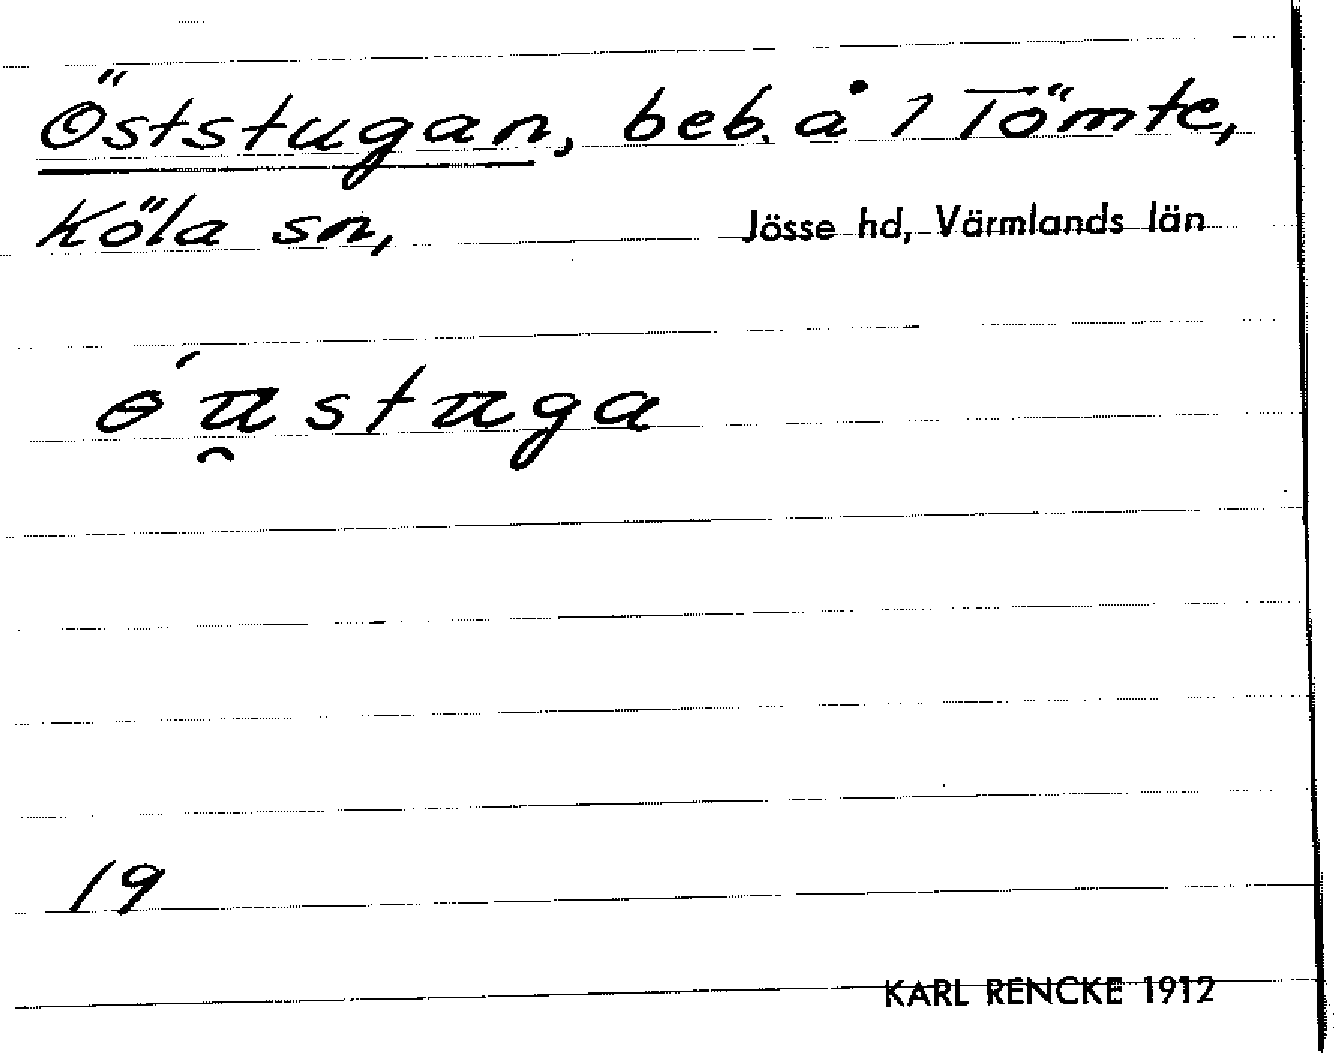 Öststugan, beb. å 1 Tömte,
Köla sn, Jösse hd, Värmlands län
ɵ́u̯stuga
19
KARL RENCKE 1912